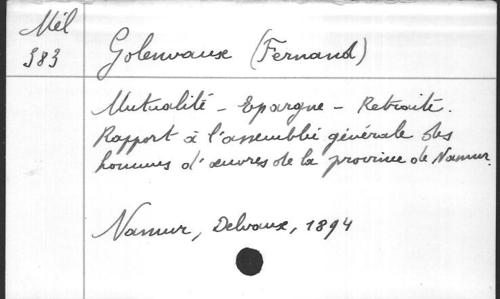 Mél
383
Golenvaux (Fernand)
Mutualité - Epargne - Retraite.
Rapport à l'assemblée générale des
hommes d'œuvres de la province de Namur.
Namur, Delvaux, 1894